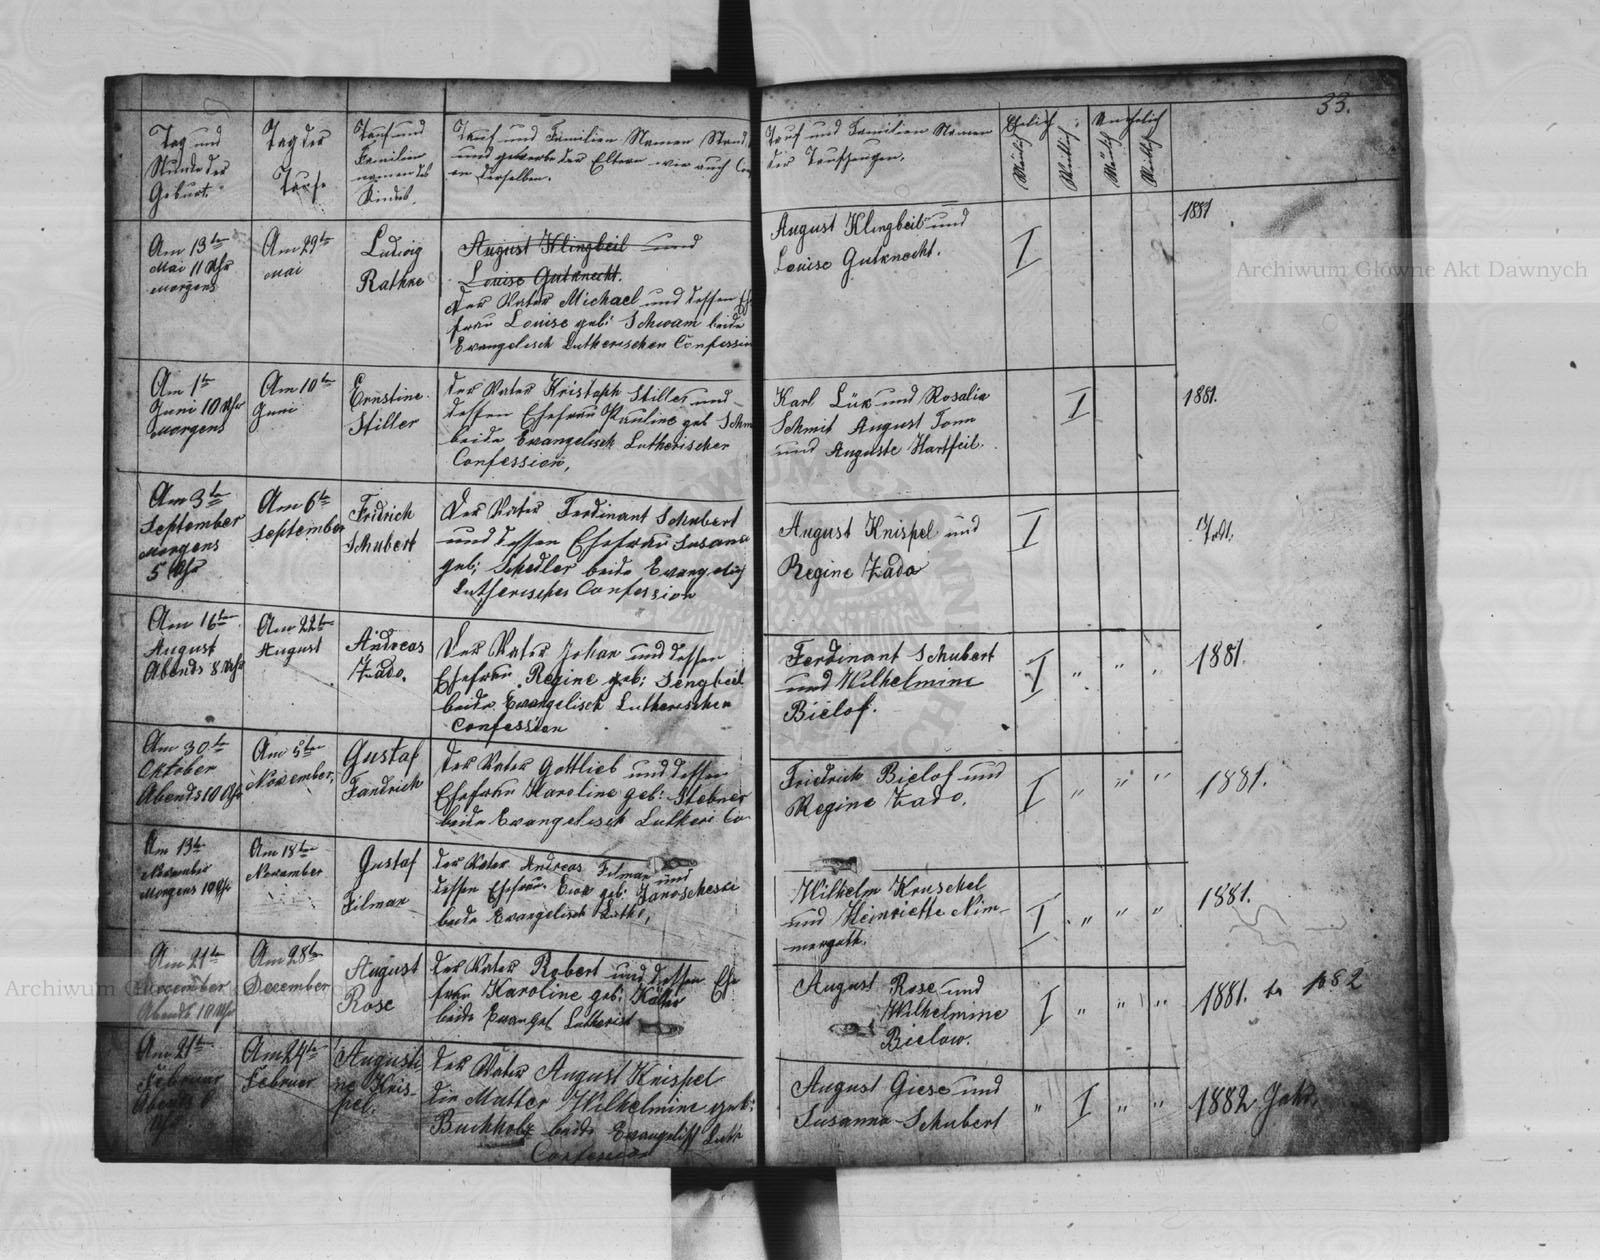 33.
Tag und
Stunde der
Geburt.
Tag der
Taufe
Tauf und
Familien
namen des
Kindes.
Tauf und Familien Namen Stand
und gewerbe der Eltern wie auch Con
en derselben.
Tauf und Familien Namen
der Taufzeugen.
Ehelich
Unehelich
Am 13te
Mai 11 Uhr
Morgens
Am 29te
Mai
Ludwig
Rathke
August Klingbeil und
Louise Gutknecht.
Der Vater Michael und dessen Ehe
frau Louise geb: Schwam beide
Evangelisch Lutherischen Confession
August Klingbeil und
Louise Gutknecht.
I
1881
Am 1te
Juni 10 Uhr
Morgens
Am 10te
Juni
Ernstine
Stiller
der Vater Kristoph Stiller und
dessen Ehefrau Pauline geb Schm
beide Evangelisch Lutherischer
Confession,
Karl Lük und Rosalia
Schmit August Tonn
und Auguste Hartfeil.
I
1881.
Am 3te
September
Morgens
5 Uhr
Am 6te
September
Fridrich
Schubert
Der Vater Ferdinant Schubert
und dessen Ehefrau Susana
geb: Schedler beide Evangelisch
Lutherisches Confession
August Knispel und
Regine Zado
I
Am 16te
August
Abends 8 Uhr
Am 22te
August
Andreas
Zado.
Der Vater Johan und dessen
Ehefrau Regine geb: Sengbeil
beide Evangelisch Lutherischen
Confession
Ferdinant Schubert
und Wilhelmine
Bielof.
I " " "
1881.
Am 30te
Oktober
Abends 10 Uhr
Am 5te
November,
Gustaf
Fandrich
der Vater Gottlieb und dessen
Ehefrau Karoline geb: Stebner
beide Evangelisch Luthers Co
Friedrich Bielof und
Regine Zado.
I " " "
1881.
Am 13te
November
Morgens 10 Uhr
Am 18te
November
Gustaf
Filman
der Vater Andreas Filman und
dessen Ehefrau Eva geb: Janoscheski
beide Evangelisch Luths,
Wilhelm Kruschel
und Heinriette Nim-
mergutk.
I " " "
1881.
Am 21te
Abends 10 Uhr
Am 28te
December
August
Rose
der Vater Robert und dessen Ehe
frau Karoline geb: Käller
beide Evangel Lutherisch
August Rose und
Wilhelmine
Bielow.
I " " "
1881. 1882
Am 21te
Februar
Abends 6
Uhr
Am 24te
Februar
Augusti
ne Knis-
pel.
der Vater August Knispel
die Mutter Wilhelmine geb:
Buchholz beide Evangelisch Luth
Confession
August Giese und
Susanna Schubert
" I " "
1882 Jahr.
Archiwum Główne Akt Dawnych